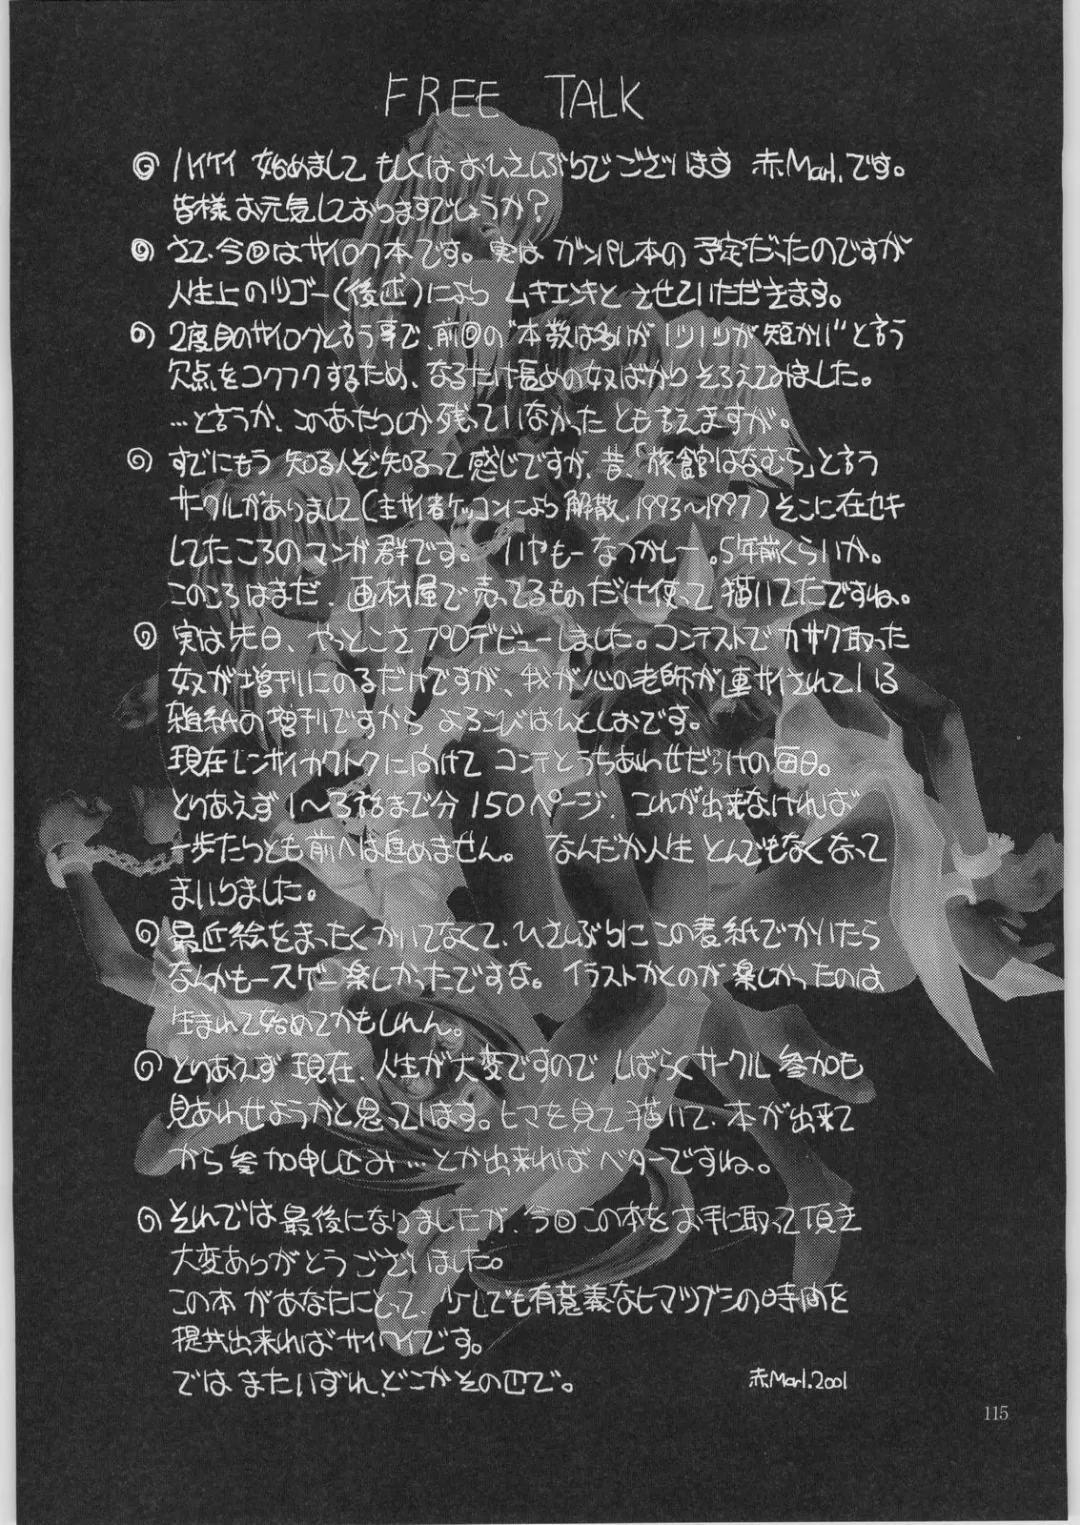 FREE TALK
ハイケイ 始めまして もしくはおひさしぶりでございます 赤Marl.です。
皆様お元気しておりますでしょうか?
さて、今回はサイロク本です。実は ガンパレ本の予定だったのですが
人生上のツゴー(後述)により ムキエンキと させていただきます。
2度目のサイロクと言う事で、前回の"本数は多いが 1ツ1ツが短かい"と言う
欠点をコクフクするため、なるたけ長めの奴ばかり そろえてみました。
…と言うか、このあたりしか残っていなかった とも言えますが。
すでにもう 知る人ぞ知るって感じですが、昔、「旅館はなむら」と言う
サークルがありまして(主サイ者ケッコンにより解散、1993〜1997)そこに在セキ
してたころのマンガ群です。 いやもー なつかしー。5年前くらいか。
このころはまだ、画材屋で売ってるものだけ使って描いてたですね。
実は先日、やっとこさプロデビューしました。コンテストでカサク取った
奴が増刊にのるだけですが、我が心の老師が連サイされている
雑紙の増刊ですから よろこびはひとしおです。
現在レンサイカクトクに向けて コンテとうちあわせだらけの毎日。
とりあえず1〜3話まで分150ページ、これが出来なければ
一歩たりとも前へは進めません。 なんだか人生 とんでもなくなって
まいりました。
最近絵をまったくかいてなくて、ひさしぶりにこの表紙でかいたら
なんかもースゲー楽しかったですな。イラストかくのが楽しかったのは
生まれて始めてかもしれん。
とりあえず 現在、人生が大変ですので しばらくサークル参加も
見あわせようかと思っています。ヒマを見て描いて、本が出来て
から参加申し込み…とか出来ればベターですね。
それでは最後になりましたが、今回この本をお手に取って頂き
大変ありがとうございました。
この本があなたにとって、少しでも有意義なヒマツブシの時間を
提共出来ればサイワイです。
ではまたいずれ、どこかその辺で。
赤Marl.2001
115